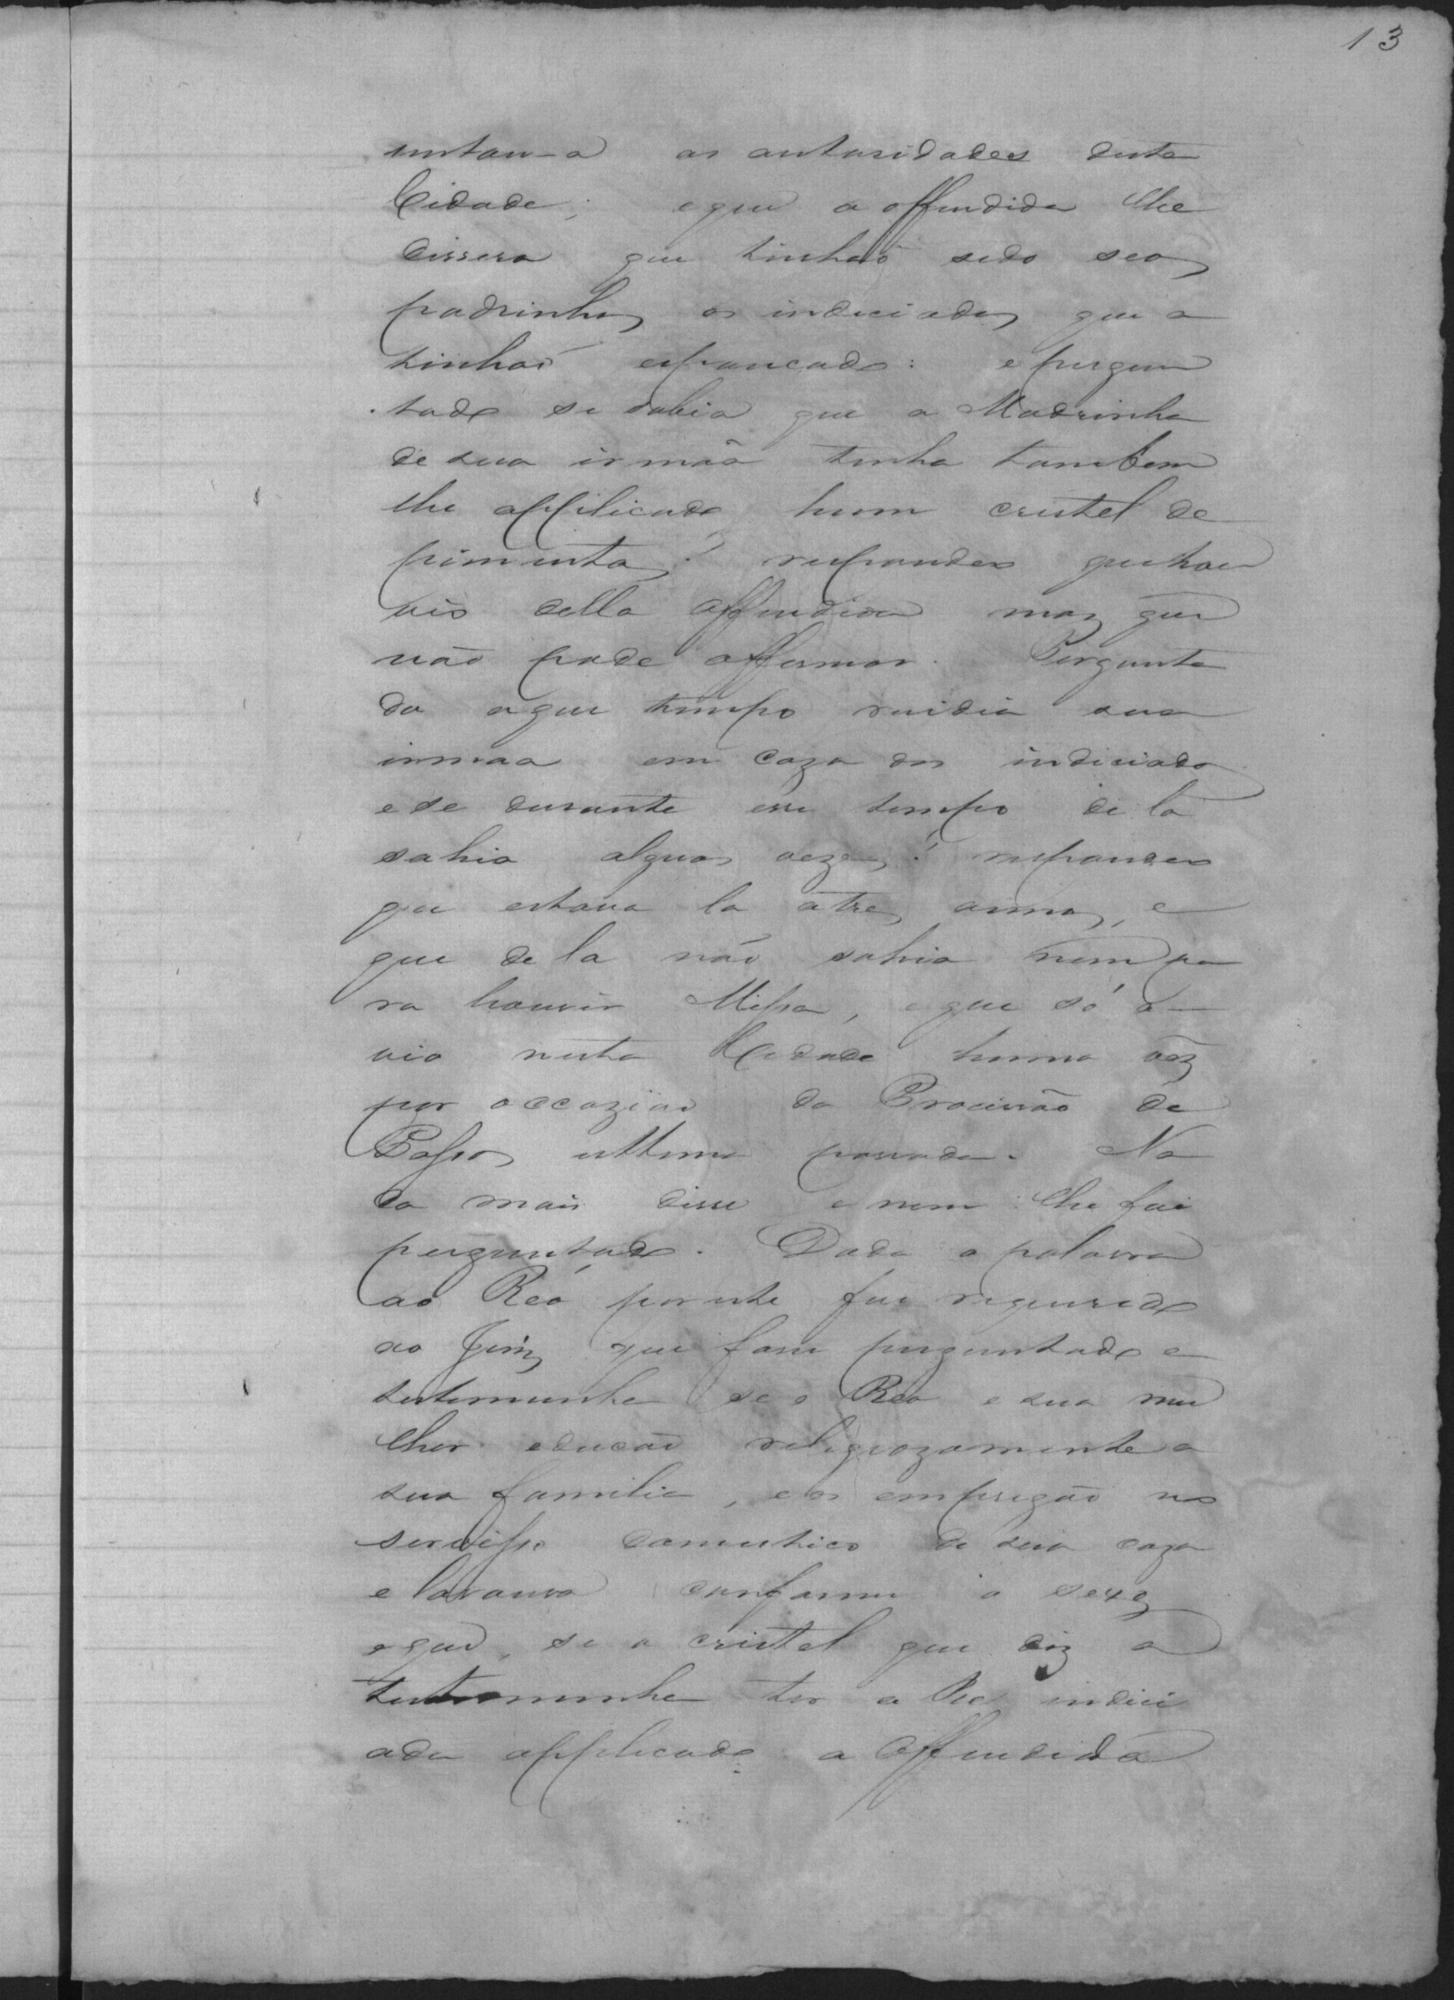 13
sentan-a as autoridades desta
Cidade; e que a offendida lhe
dissera que tinhaõ sido seos
padrinhos os indiciados que a
tinhaõ espancado: e pergun
tado se sabia que a Madrinha
de sua irmãa tinha tambem
lhe appilicado hum cristel de
pimenta? respondeo que hou
vio della offendida mas que
não pode affirmar. Pergunta
do a que tempo rezidia sua
irmaa em caza dos indiciado
e se durante esse tempo de lá
sahia alguas vezes? respondeo
que estava la a tres annos, e
que de la não sahia nem pa
ra houvir Missa, e que só a
vio nesta Cidade huma vêz
por occaziaõ da Procissão de
Passos ultima passada. Na
da mais disse e nem lhe foi
perguntado. Dada a palavra
ao Reó por este foi requerido
ao Juiz que fosse perguntado a
testemunha se o Reo e sua mu
lher educaõ religiozamente a
sua familia, e os empregão no
serviço domestico de sua caza
e lavoura conforme o sexo,
e que, se o cristel que diz a
testemunha ter a Ré indici
ada applicado a Offendida